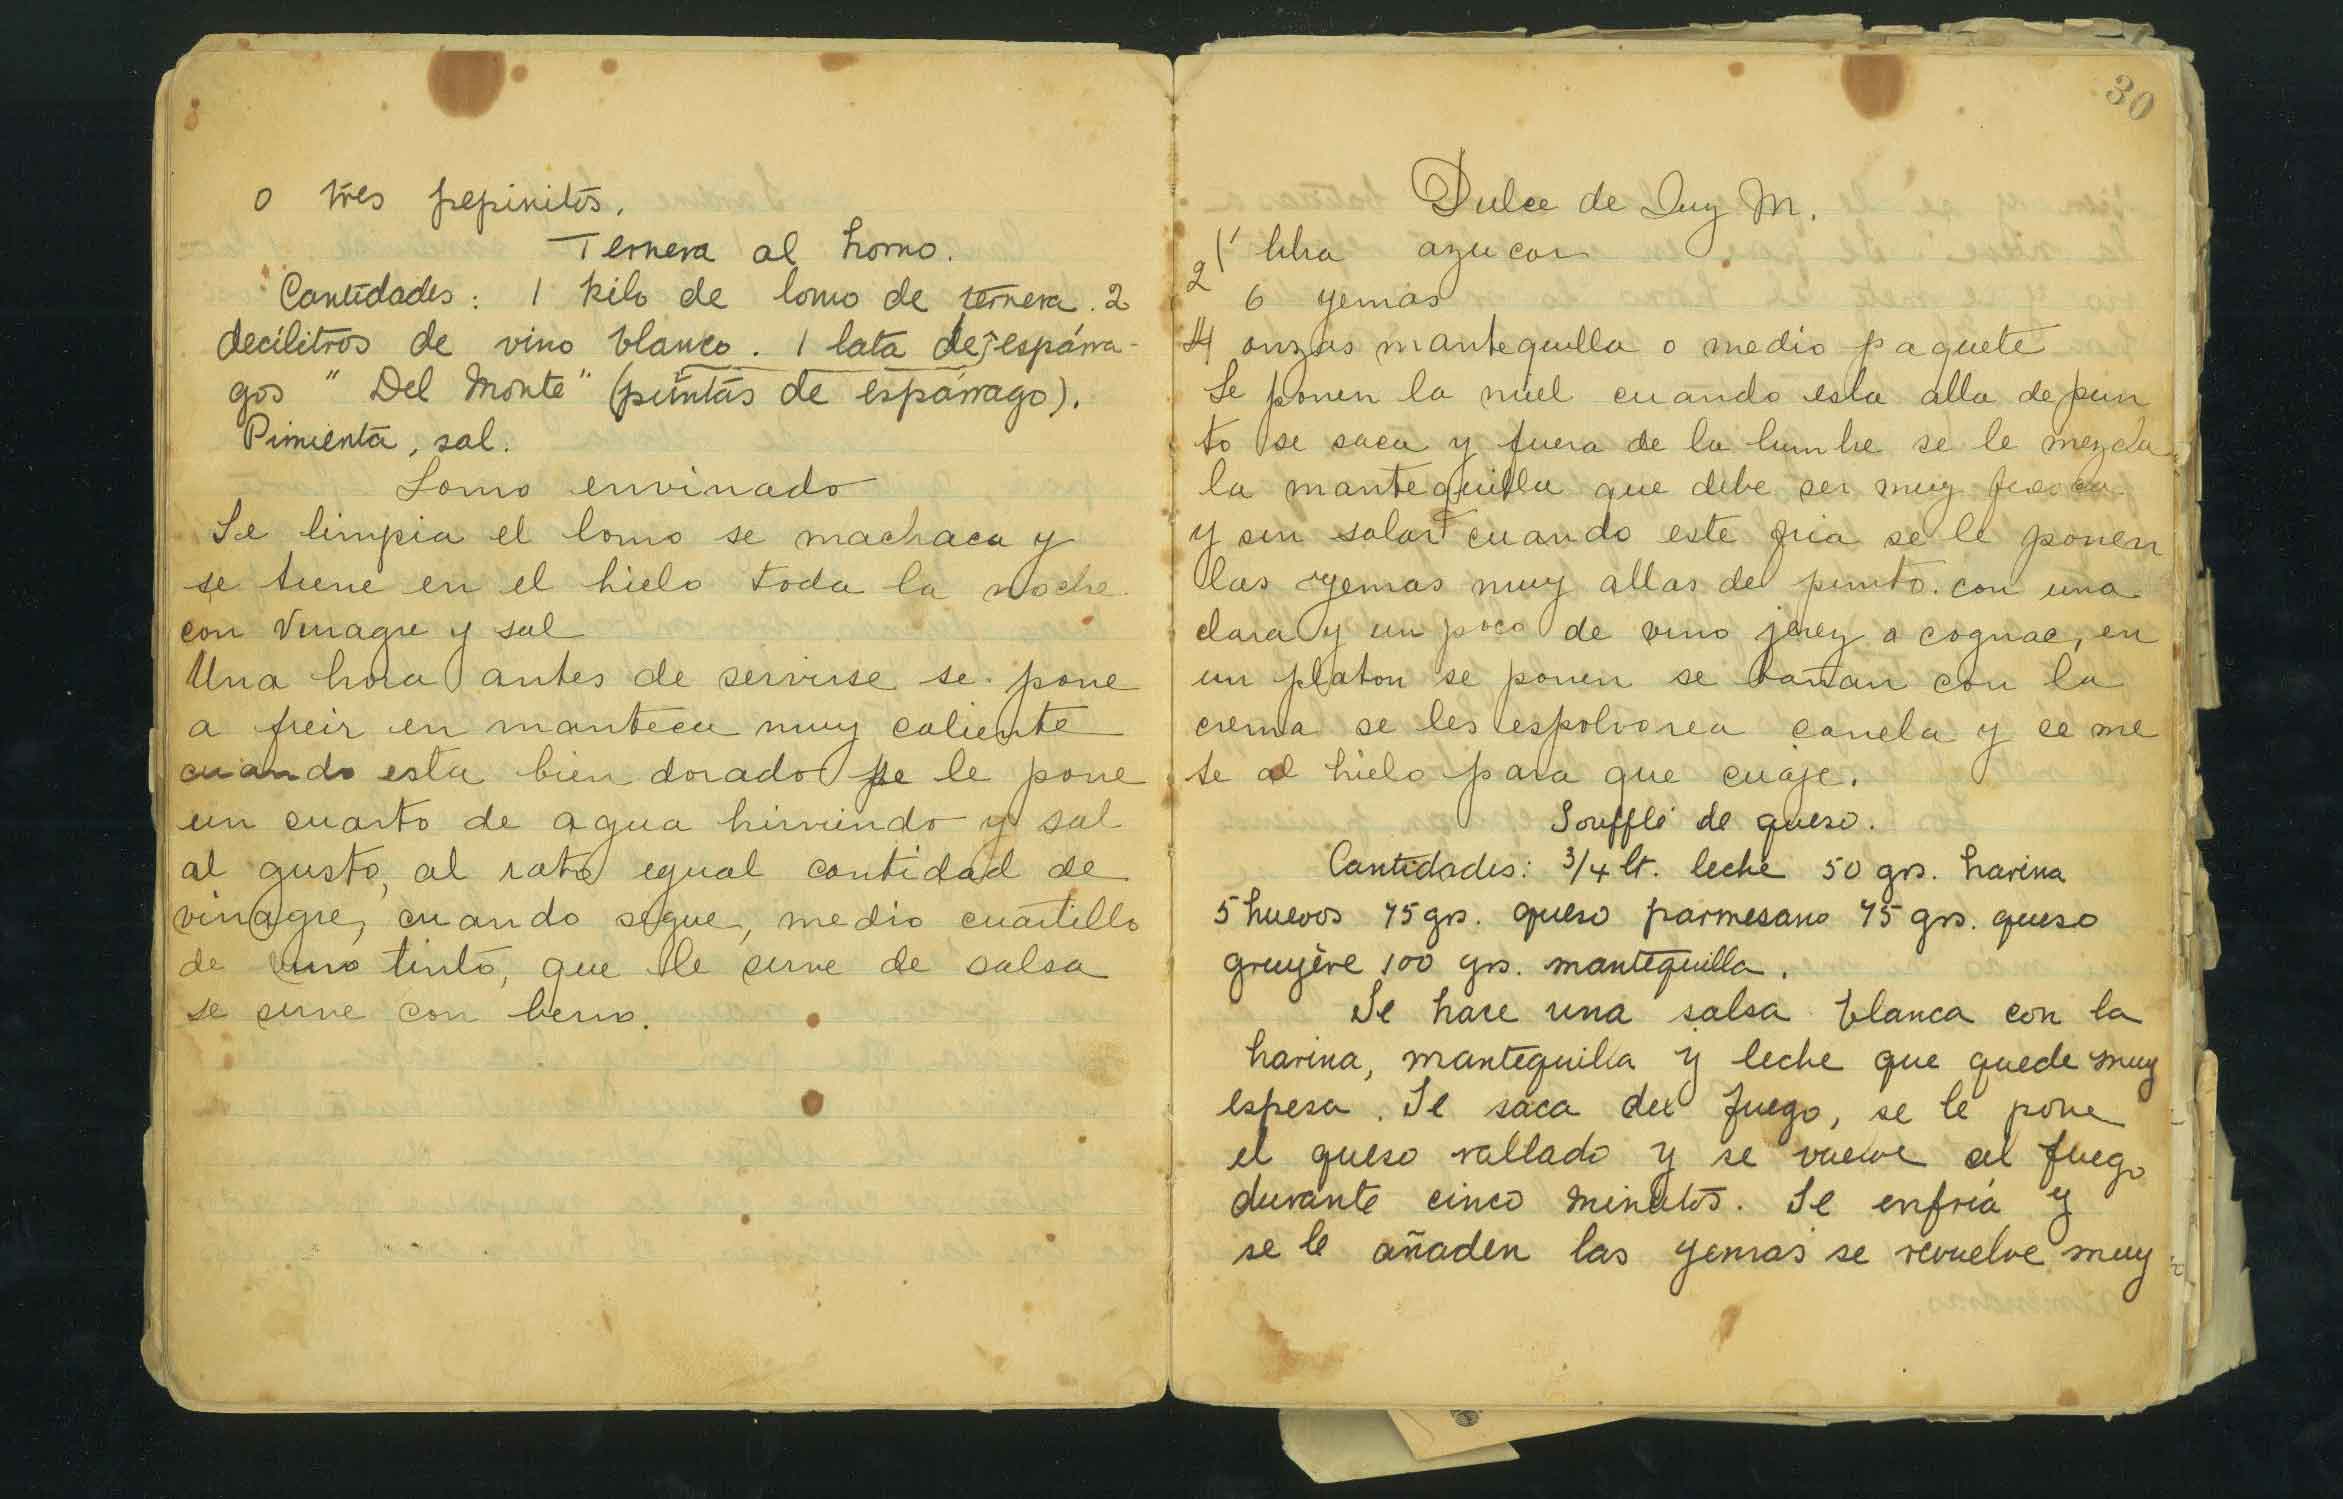 o tres pepinitos.
Ternera al horno.
Cantidades: 1 kilo de lomo de ternera. 2
decílitros de vino blanco. 1 lata de espárra-
gos "Del Monte" (puntas de espárrago).
Pimienta, sal.
Lomo envinado
Se limpia el lomo se machaca y
se tiene en el hielo toda la noche
con vinagre y sal
Una hora antes de servirse se pone
a freir en manteca muy caliente
cuando esta bien dorado se le pone
un cuarto de agua hirviendo y sal
al gusto, al rato egual cantidad de
vinagre, cuando seque, medio cuartillo
de vino tinto, que le sirve de salsa
se sirve con berro.
30
Dulce de Luz M.
1 libra azucar
2
6 yemas
4 onzas mantequilla o medio paquete
Se ponen la miel cuando esta alta de pun
to se saca y fuera de la lumbre se le mezcla
la mantequilla que debe ser muy fresca
y sin salar cuando este fria se le ponen
las yemas muy altas de punto. con una
clara y un poco de vino jerez o cognac, en
un platon se ponen se bañan con la
crema se les espolvorea canela y se me
te al hielo para que cuaje.
Soufflé de queso.
Cantidades: 3/4 lt. leche 50 grs. harina
5 huevos 75 grs. queso parmesano 75 grs. queso
gruyère 100 grs. mantequilla.
Se hace una salsa blanca con la
harina, mantequilla y leche que quede muy
espesa. Se saca del fuego, se le pone
el queso rallado y se vuelve al fuego
durante cinco minutos. Se enfría y
se le añaden las yemas se revuelve muy